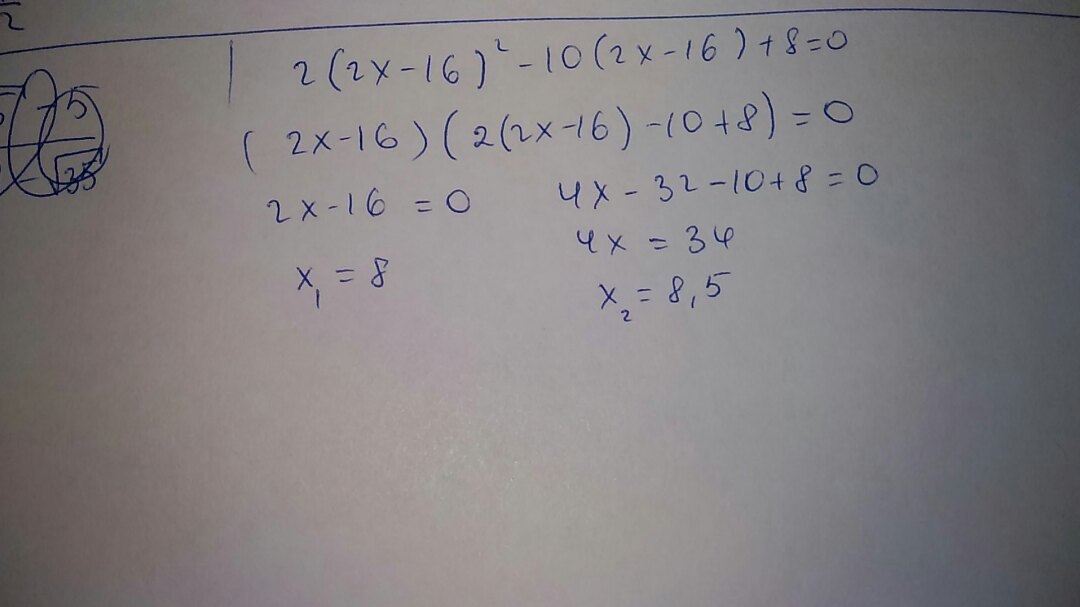 2
2(2x-16)² -10(2x-16)+8=0
(2x-16)(2(2x-16)-10+8)=0
2x-16=0 4x-32-10+8=0
4x=34
x₁=8 x₂=8,5